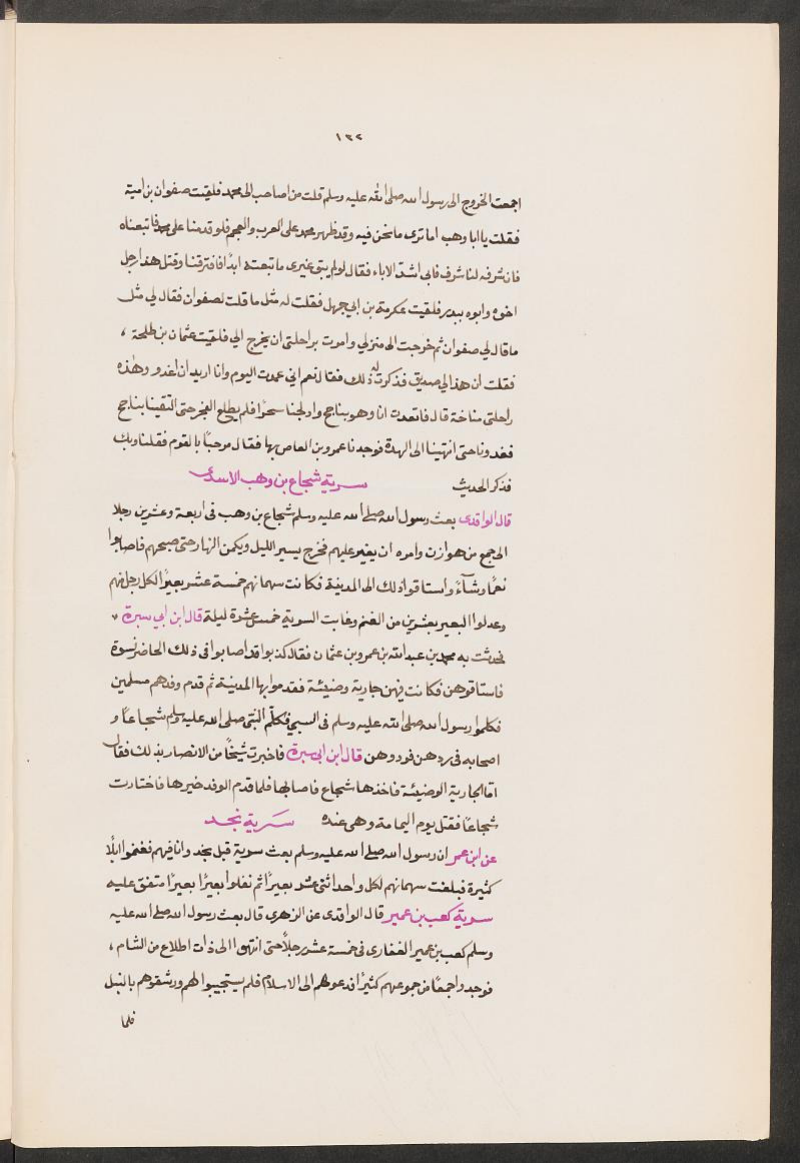 ١٢٢
اجمعت الخروج الى رسول الله صلى الله عليه وسلم قلت من اصاحب الى محمد فلقيت صفوان بن امية
فقلت يا ابا وهب اما ترى ما نحن فيه وقد ظهر محمد على العرب والعجم فلو قدمنا على محمد فاتبعناه
فان شرفه لنا شرف فابى اشد الاباء فقال لو لم يبق غيرى ما تبعته ابدًا فافترقنا وقتل هذا رجل
اخوه وابوه ببدر فلقيت عكرمة بن ابي جهل فقلت له مثل ما قلت لصفوان فقال لي مثل
ما قال لي صفوان ثم خرجت الى منزلي وامرت براحلتى ان يخرج الي فلقيت عثمان بن طلحة ،
فقلت ان هذا لي صديق فذكرت له ذلك فقال نعم اني عمدت اليوم وانا اريد ان اغدو وهذه
راحلتى مناخة قال فاتعدت انا وهو بناجح وادلجنا سحرًا فلم يطلع الفجر حتى التقينا بناجح
فغدونا حتى انتهينا الى الهدة فوجدنا عمرو بن العاص بها فقال مرحبًا بالقوم فقلنا وبك
فذكر الحديث سرية شجاع بن وهب الاسدى
قال الواقدى بعث رسول الله صلى الله عليه وسلم شجاع بن وهب فى اربعة وعشرين رجلا
الى جمع من هوازن وامره ان يغير عليهم فخرج يسير الليل ويكمن النهار حتى صبحهم فاصابوا
نعمًا وشآءً واستاقوا ذلك الى المدينة فكانت سهمانهم خمسة عشر بعيرًا لكل رجل منهم
وعدلوا البعير بعشرين من الغنم وغابت السرية خمس عشرة ليلة قال ابن ابي سبرة ،
فحدثت به محمد بن عبد الله بن عمرو بن عثمان فقال كذبوا قد اصابوا فى ذلك الحاضر نسوة
فاستاقوهن فكانت فيهن جارية وضيئة فقدموا بها المدينة ثم قدم وفدهم مسلمين
فكلموا رسول الله صلى الله عليه وسلم فى السبي فكلّم النبى صلى الله عليه وسلم شجاعًا و
اصحابه فى ردهن فردوهن قال ابن ابى سبرة فاخبرت شيخًا من الانصار بذلك فقال
امّا الجارية الوضيئة فاخذها شجاع فاصابها فلما قدم الوفد خيرها فاختارت
شجاعًا فقتل يوم اليمامة وهى عنده سَرية نجد
عن ابن عمر ان رسول الله صلى الله عليه وسلم بعث سرية قبل نجد وانا فيهم فغنموا ابلًا
كثيرة فبلغت سهمانهم لكل واحد اثنى عشر بعيرًا ثم نفلوا بعيرًا بعيرًا متفق عليه
سرية كعب بن عمير قال الواقدى عن الزهرى قال بعث رسول الله صلى الله عليه
وسلم كعب بن عمير الغفارى فى خمسة عشر رجلًا حتى انتهوا الى ذات اطلاع من الشام ،
فوجدوا جمعًا من جموعهم كثيرًا فدعوهم الى الاسلام فلم يستجيبوا لهم ورشقوهم بالنبل
فلما